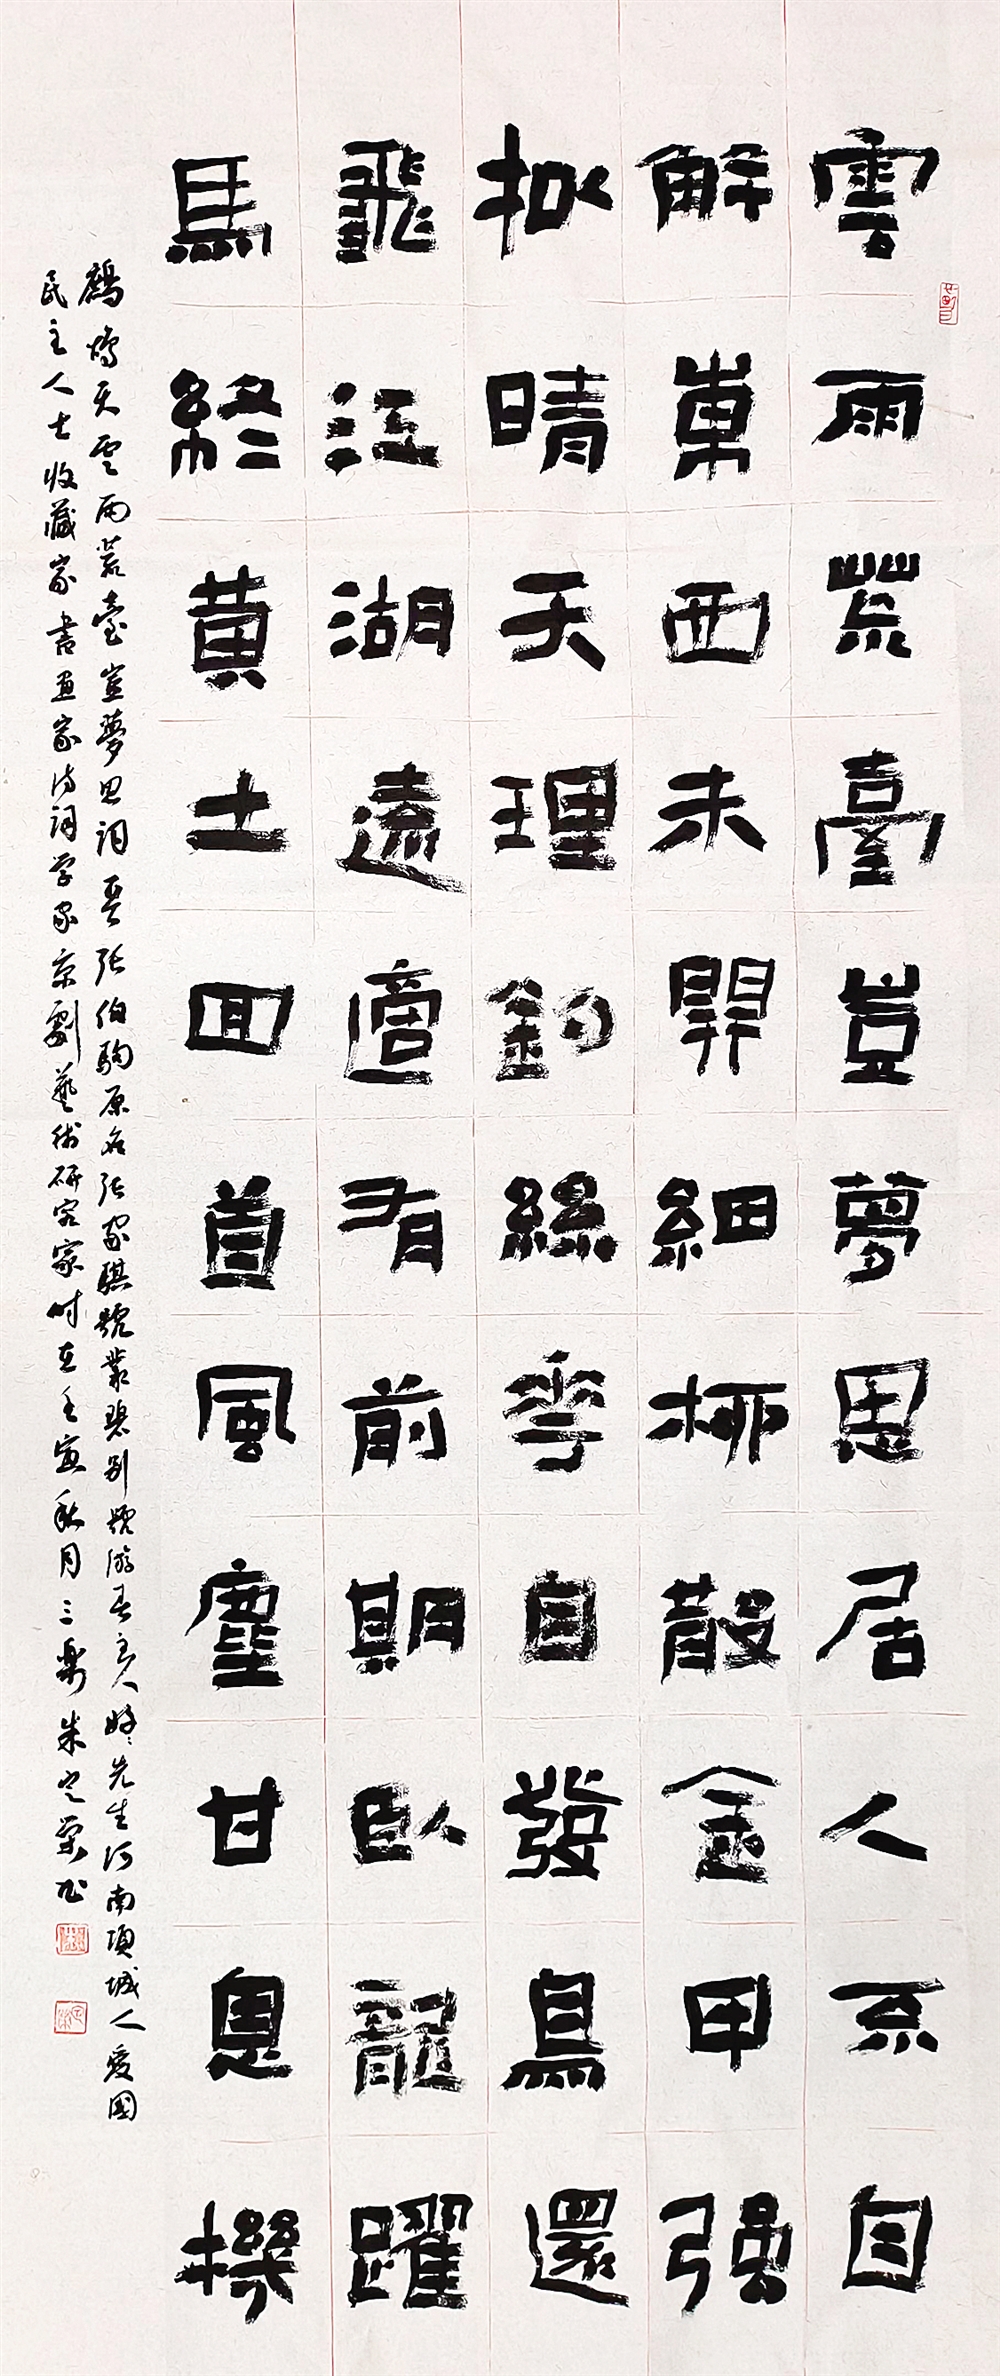 雲雨荒臺豈夢思居人不自
解巢西未開細柳散金甲强
拟晴天理釣絲花自發鳥還
飛江湖遠適有前期卧龍躍
馬終黄土回首風塵甘息機
鷓鴣天雲雨荒臺豈夢思詞张伯駒原名张家騏號叢碧别號游春主人好好先生河南項城人爱國
民主人士收藏家書画家诗词学家京劇藝術研究家时在壬寅秋月三樂朱定榮书